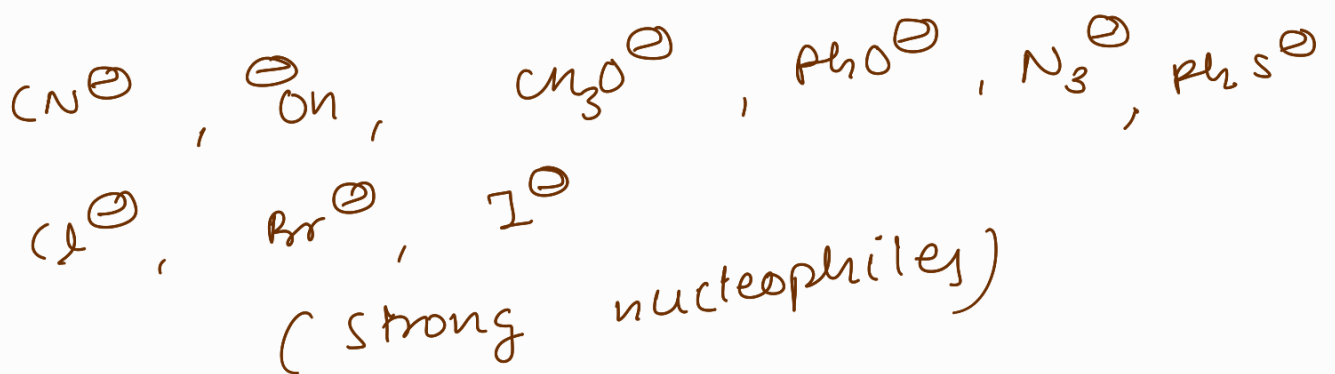 CN⊖, ⊖OH, CH₃O⊖, PhO⊖, N₃⊖, PhS⊖
Cl⊖, Br⊖, I⊖
(strong nucleophiles)